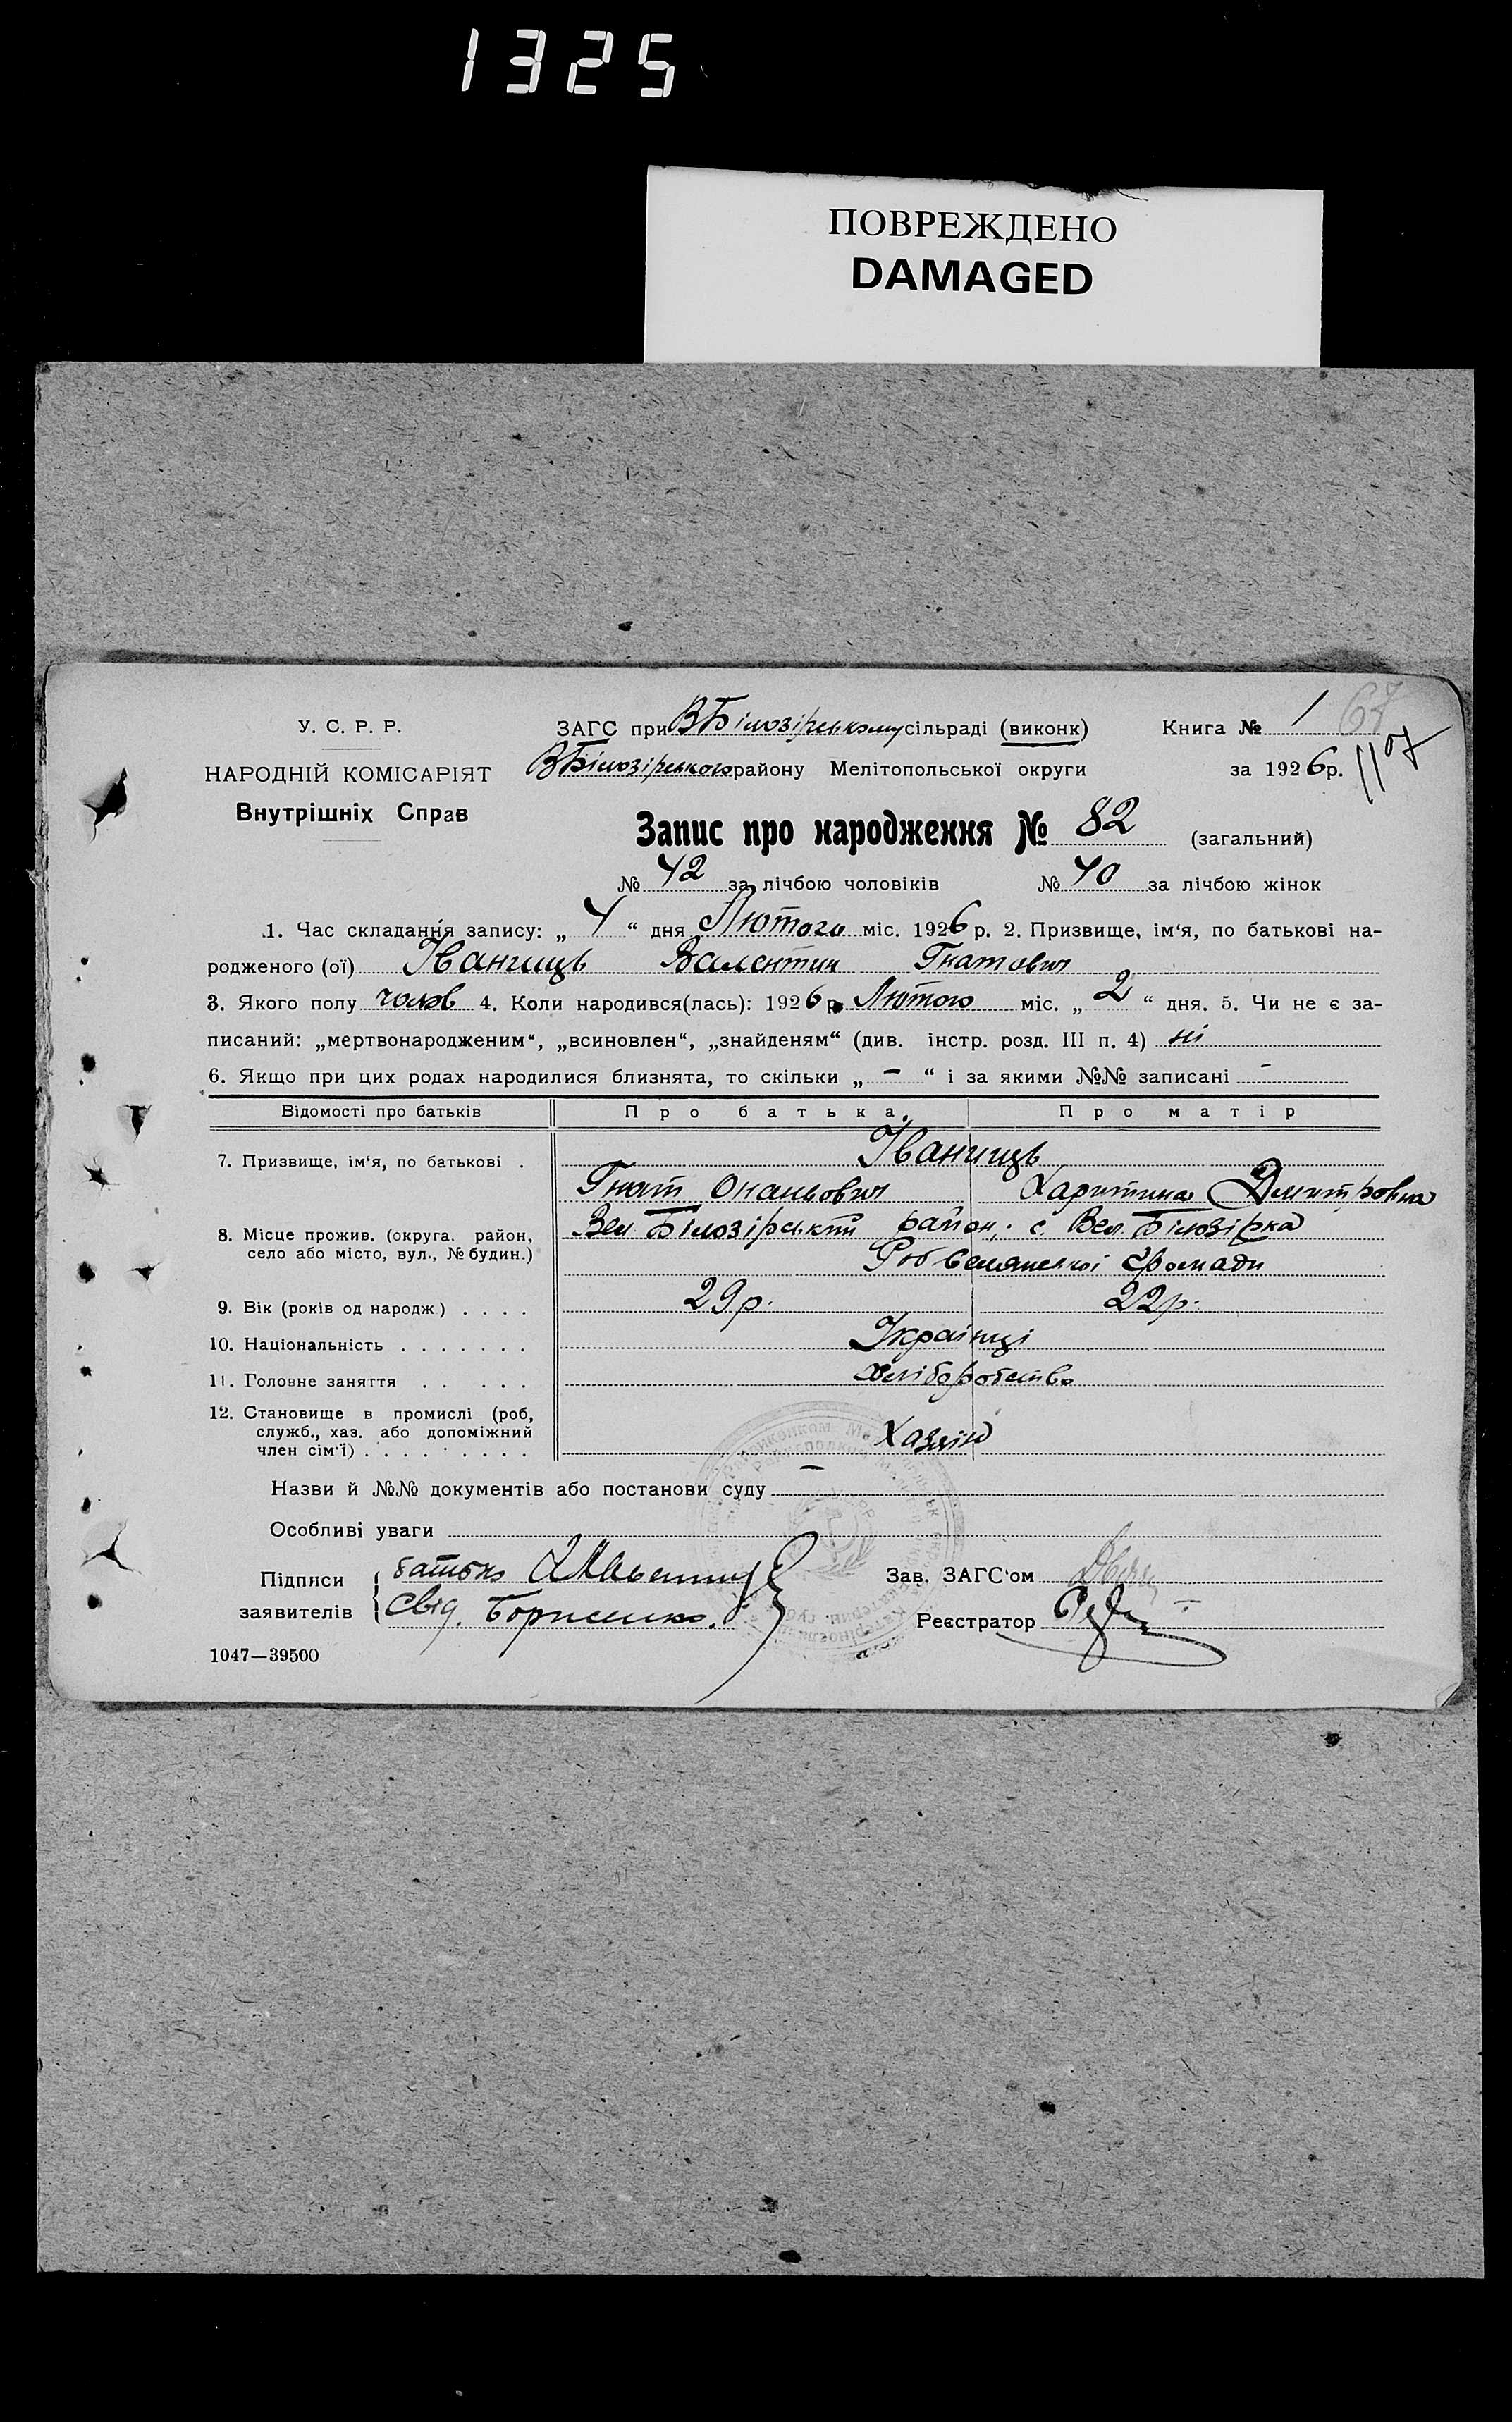 1325
ПОВРЕЖДЕНО
DAMAGED
У. С. Р. Р.
НАРОДНІЙ КОМІСАРІЯТ
Внутрішніх Справ
ЗАГС при ВБілозірському сільраді (виконк)
Книга № 1
67
ВБілозірського району Мелітопольської округи
за 1926 р.
1107
Запис про народження № 82 (загальний)
№ 42 за лічбою чоловіків № 40 за лічбою жінок
1. Час складання запису: „ 4 “ дня Лютого міс. 1926 р. 2. Призвище, ім‘я, по батькові на-
родженого (ої) Іваниць Валентин Гнатович
3. Якого полу чолов 4. Коли народився(лась): 1926 р. Лютого міс. „ 2 “ дня. 5. Чи не є за-
писаний: „мертвонародженим“, „всиновлен“, „знайденям“ (див. інстр. розд. III п. 4) ні
6. Якщо при цих родах народилися близнята, то скільки „ – “ і за якими №№ записані –
Відомості про батьків Про батька Про матір
7. Призвище, ім‘я, по батькові . Іваниць
Гнат Опаньович Харитина Дмитровна
8. Місце прожив. (округа. район,
село або місто, вул., № будин.)
Вел. Білозірський район, с. Вел. Білозірка
Селянської громади
9. Вік (років од народж) . . . . 29 р. 22 р.
10. Національність . . . . . . . Українці
11. Головне заняття . . . . . хліборобство
12. Становище в промислі (роб,
служб., хаз. або допоміжний
член сім‘ї) . . . . . . . . . Хазяїн
Назви й №№ документів або постанови суду –
Особливі уваги
Підписи
заявителів
батько
Свід. Борисенко.
Зав. ЗАГС‘ом
Реєстратор
1047—39500